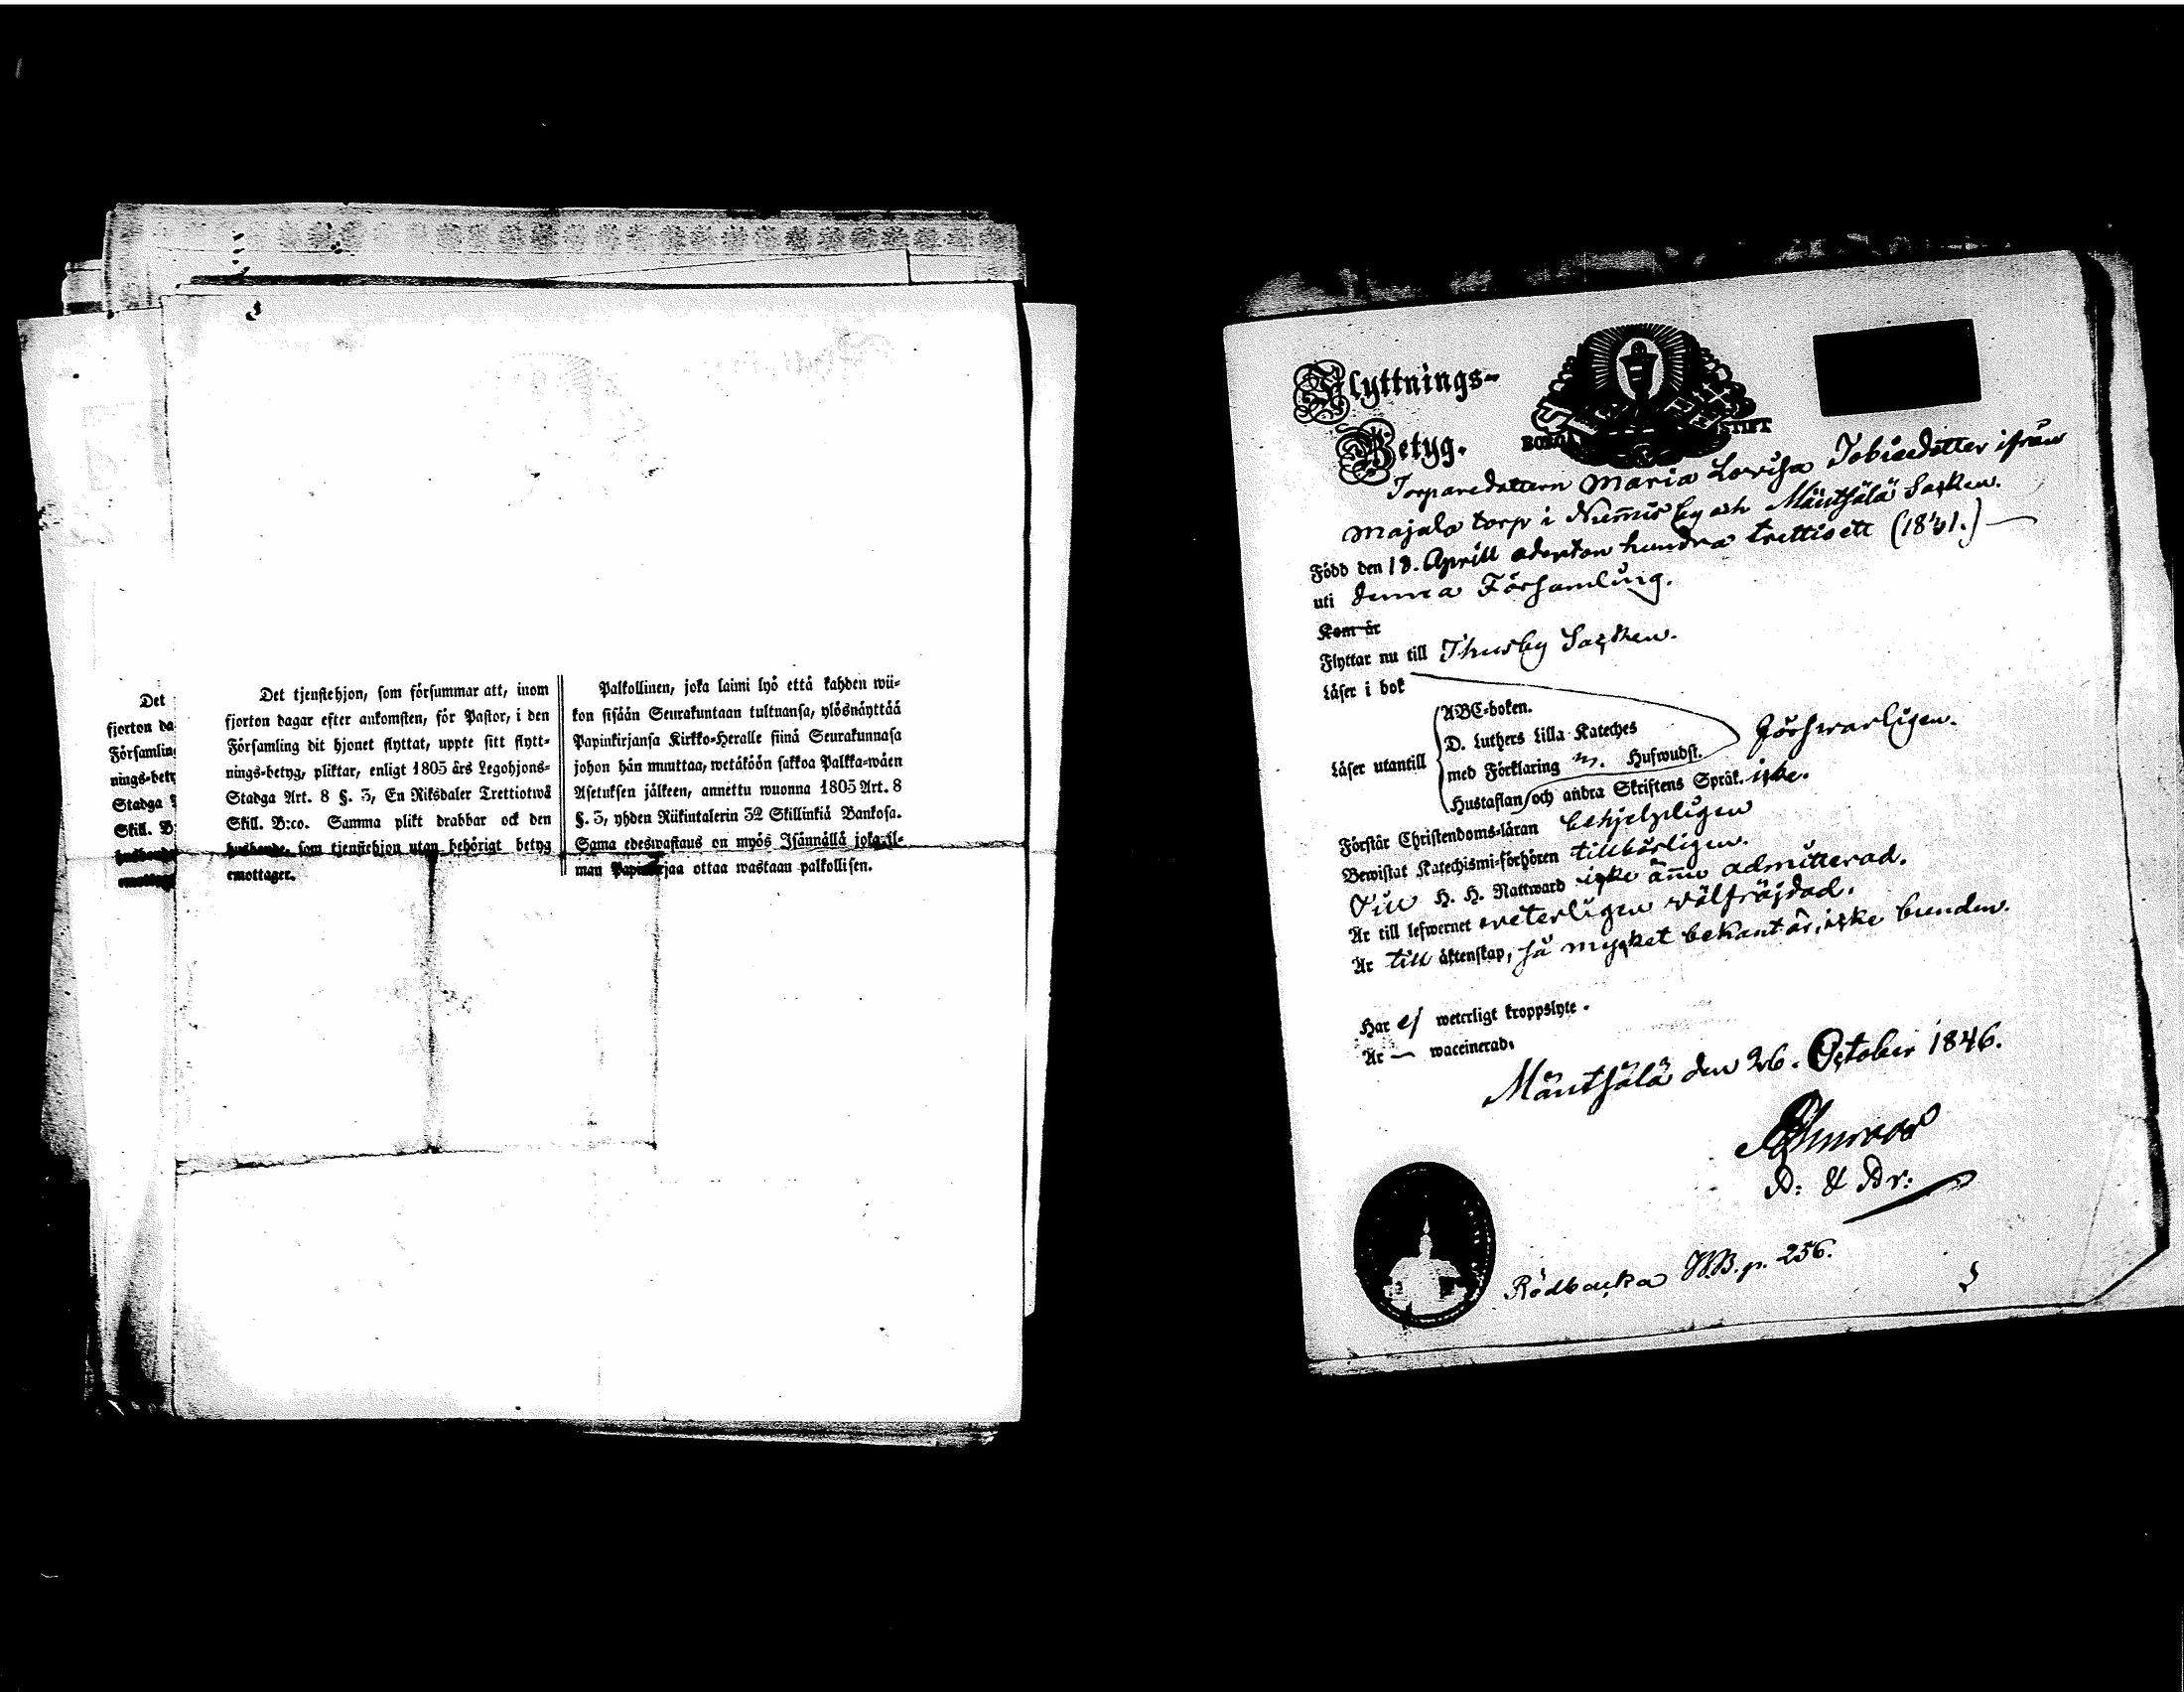 Det
fjorton da-
Församling
nings-bety
Stadga
Skill. B:
Det tjenstehjon, som försummar att, inom
fjorton dagar efter ankomsten, för Pastor, i den
Församling dit hjonet flyttat, uppte sitt flytt-
nings-betyg, pliktar, enligt 1805 års Legohjons-
Stadga Art. 8 §. 3, En Riksdaler Trettiotwå
Skill. B:co. Samma plikt drabbar ock den
husbonde, som tjenstehjon utan behörigt betyg
emottager.
Palkollinen, joka laimi lyö että kahden wii-
kon sisään Seurakuntaan tultuansa, ylösnäyttää
Papinkirjansa Kirkko-Heralle siinä Seurakunnasa
johon hän muuttaa, wetäköön sakkoa Palkka-wäen
Asetuksen jälkeen, annettu wuonna 1805 Art. 8
§. 3, yhden Riikintalerin 32 Skillinkiä Bankosa.
Sama edeswastaus on myös Isännällä joka il-
man Papinkirjaa ottaa wastaan palkollisen.
Flyttnings-
Betyg.
BORGÅ STIFT
Torparedottern Maria Lovisa Tobiaedotter ifrån
Majala torp i Numis by och Mäntsälä Socken.
Född den 18. Aprill aderton hundra trettiett (1831.)
uti denna Församling.
Kom år
Flyttar nu till Thusby Socken.
Läser i bok
Läser utantill
ABC-boken.
D. Luthers Lilla Kateches
med Förklaring m. Hufwudst.
Hustaflan och andra Skriftens Språk. icke.
försvarligen.
Förstår Christendoms-läran behjelpligen
Bewistat Katechismi-förhören tillbörligen.
Till H. H. Nattward icke ännu admitterad.
Är till lefwernet veterligen välfräjdad.
Är till äktenskap, så mycket bekant är, icke bunden.
Har ej weterligt kroppslyte.
Är — waccinerad.
Mäntsälä den 26. October 1846.
Rödbacka K.B. p. 256.